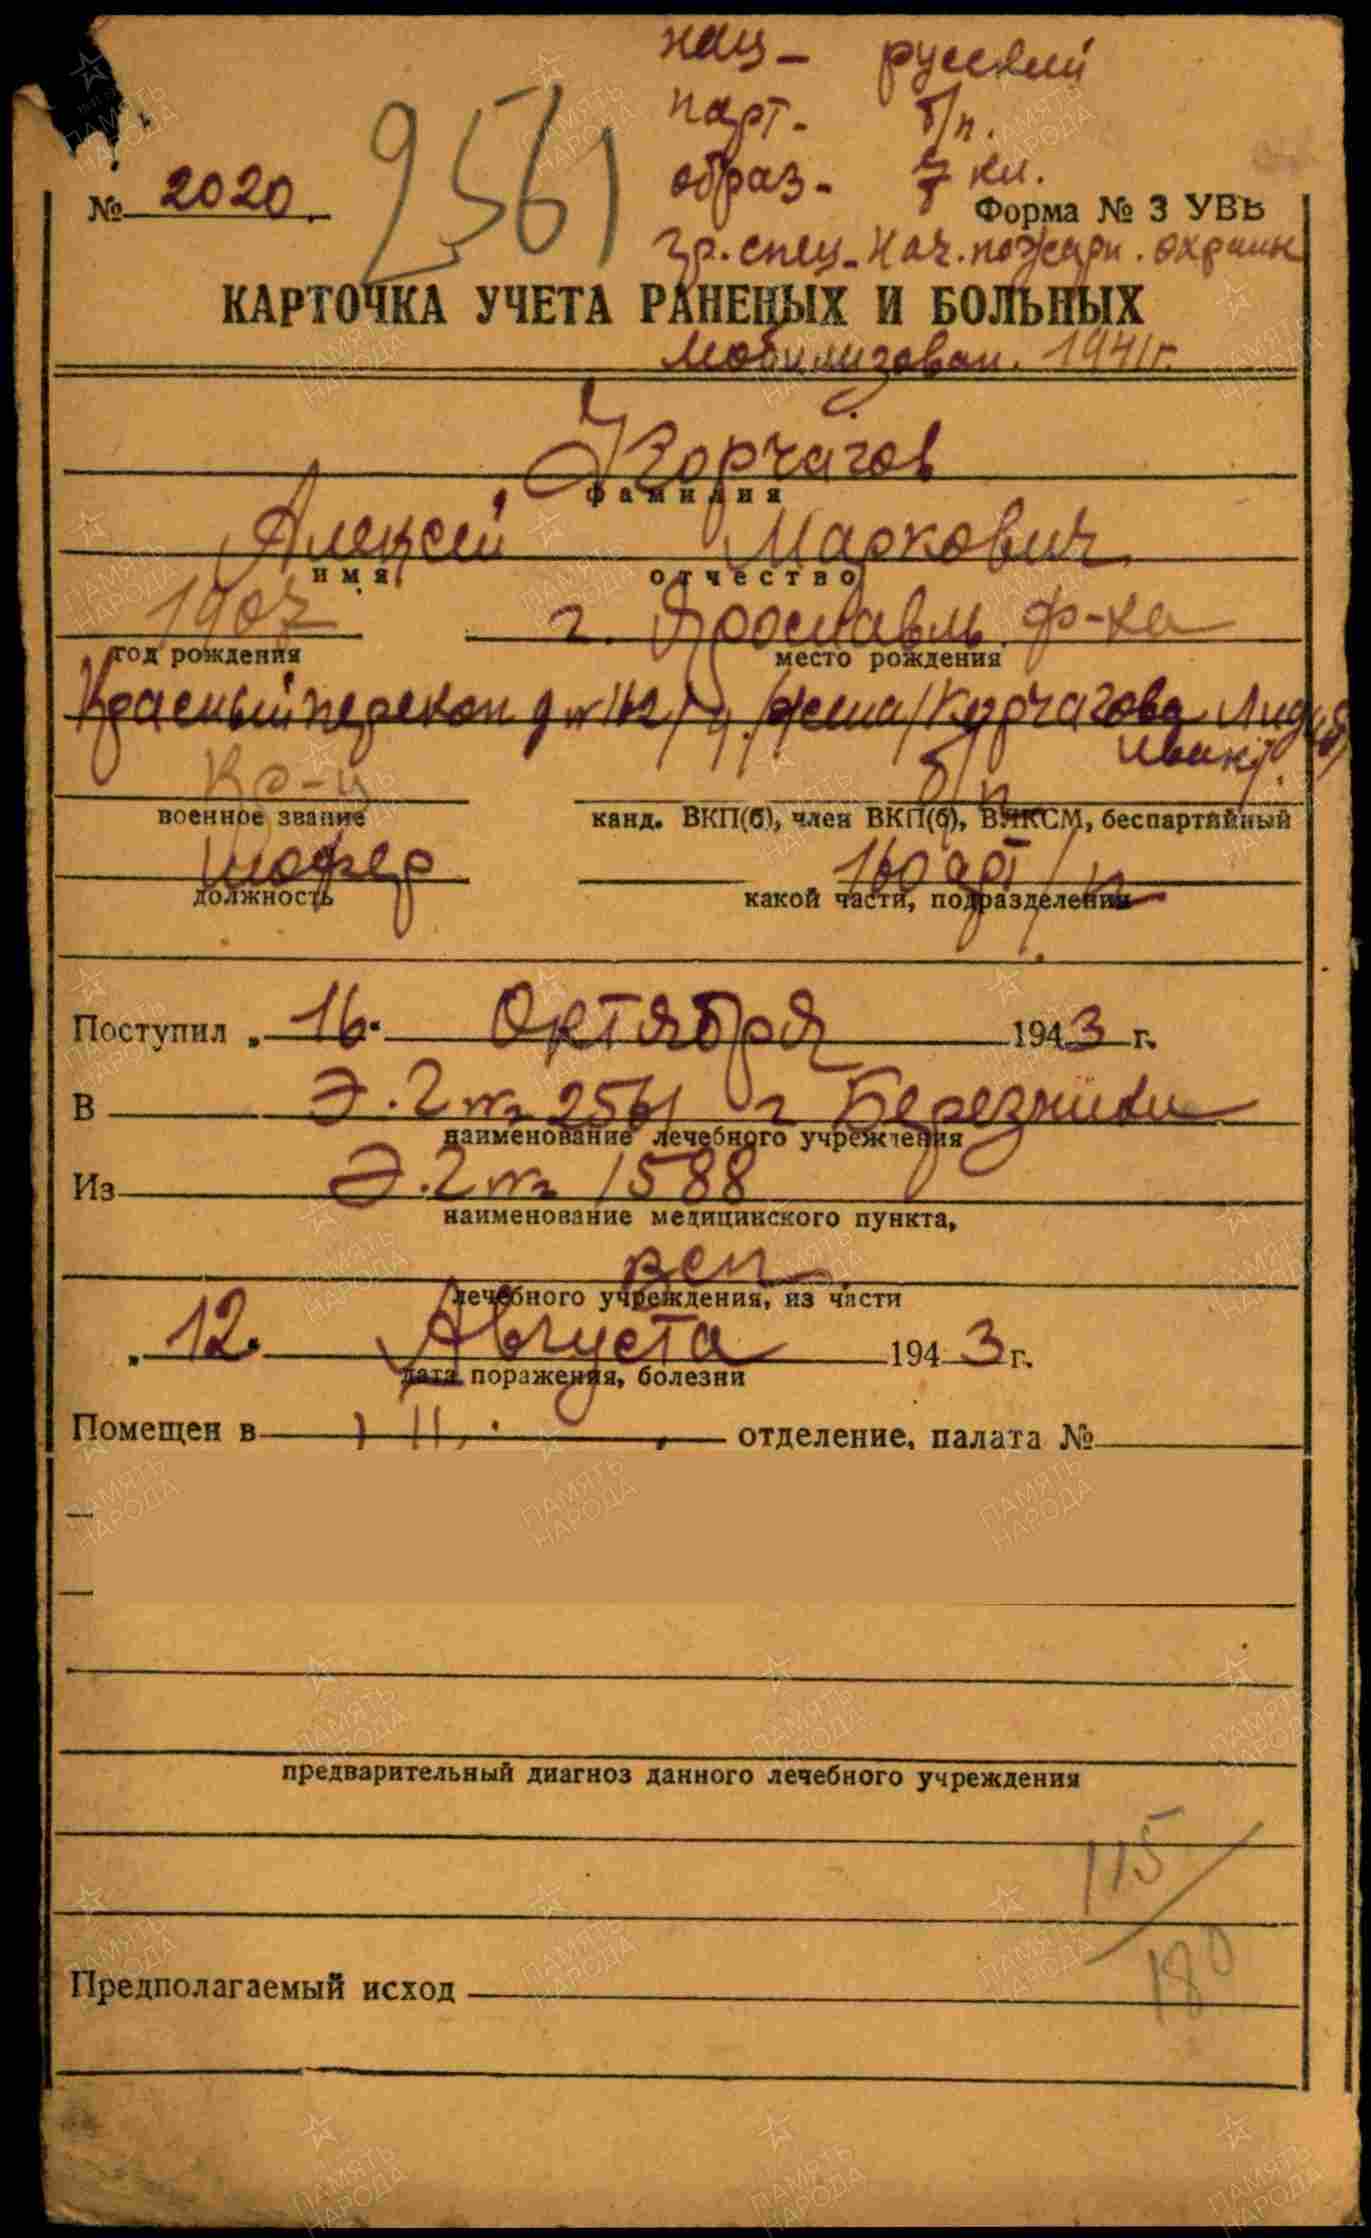 нац- русский
парт. б/п.
2561
образ- 7 кл.
№ 2020.
Форма № 3 УВВ
гр. спец- Нач. пожарн. охраны
КАРТОЧКА УЧЕТА РАНЕНЫХ И БОЛЬНЫХ
Мобилизован. 1941 г.
Корчагов
фамилия
Алексей Маркович
имя отчество
1907 г. Ярославль ф-ка
год рождения место рождения
Красный перекоп д № /жена/ Корчагова Лидия
Иван.
Кр-ц б/п
военное звание канд. ВКП(б), член ВКП(б), ВЛКСМ, беспартийный
шофер 160 арт/п
должность какой части, подразделения
Поступил „ 16. Октября 1943 г.
В Э.Г № 2561 г Березники
наименование лечебного учреждения
Из Э.Г № 1588
наименование медицинского пункта,
лечебного учреждения, из части
„ 12. Августа 1943 г.
дата поражения, болезни
Помещен в II отделение, палата №
предварительный диагноз данного лечебного учреждения
115/180
Предполагаемый исход
ПАМЯТЬ НАРОДА